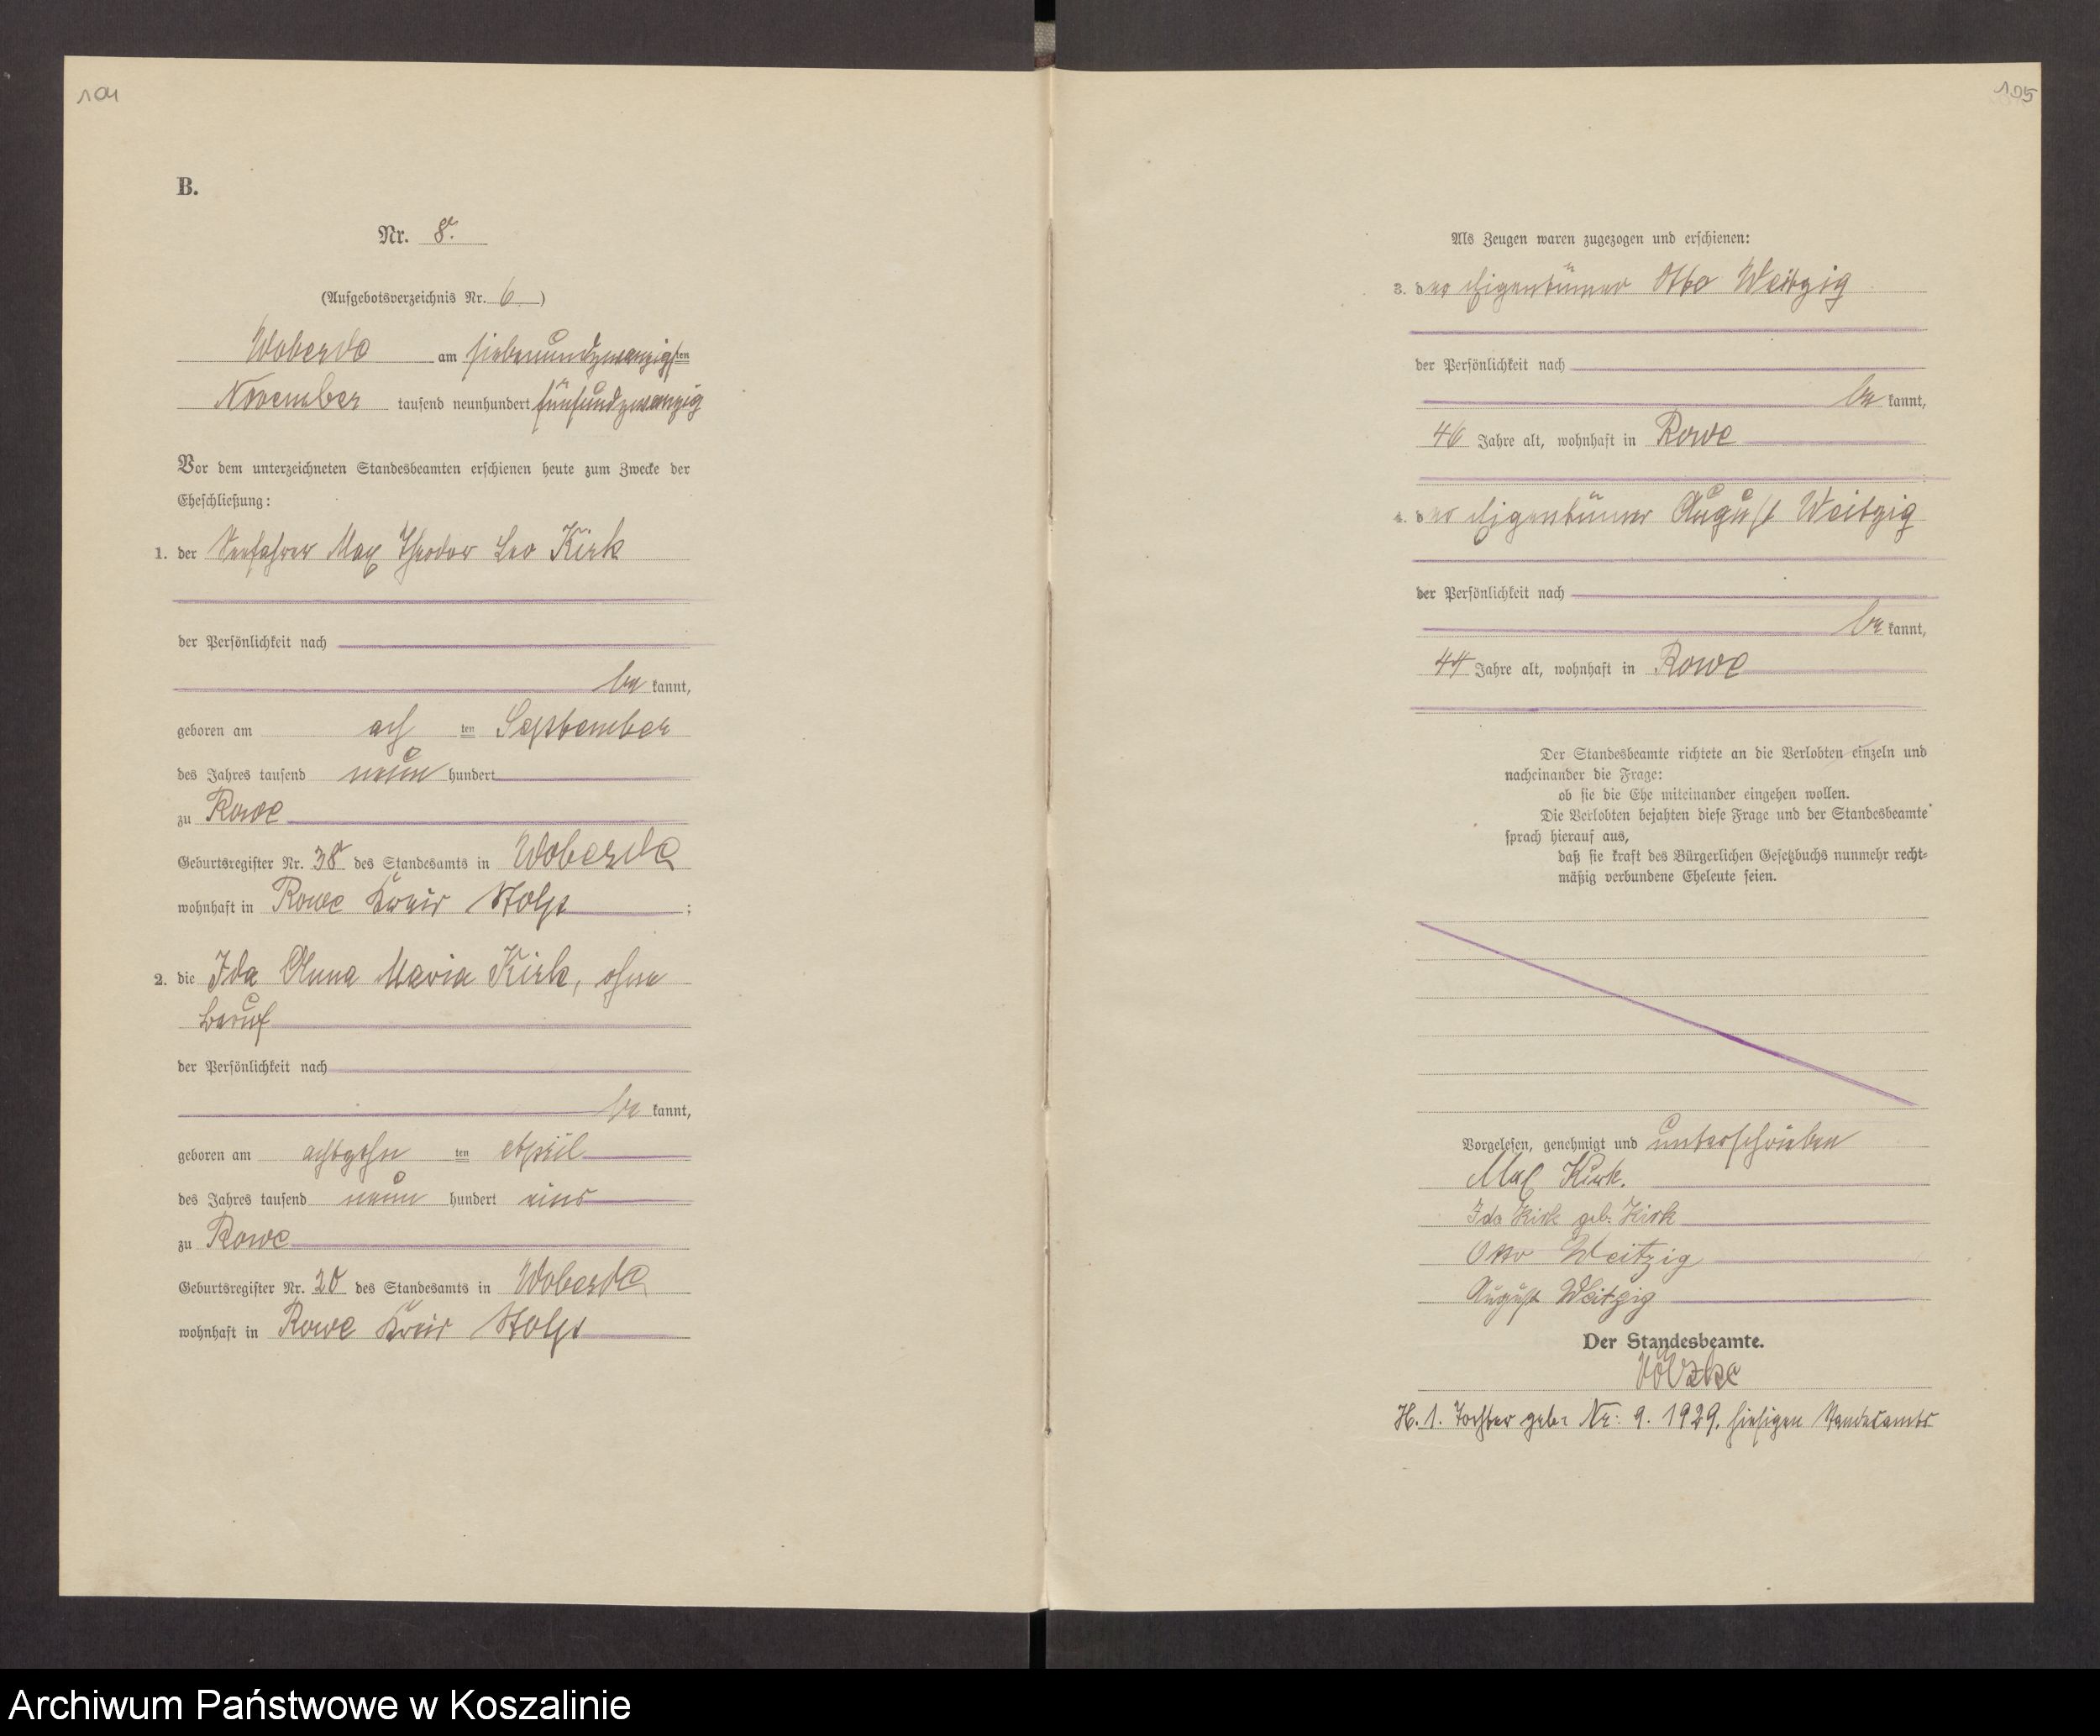 104
B.
Nr. 8.
(Aufgebotsverzeichnis Nr. 6.)
Wobesde am siebenundzwanzigsten
November tausend neunhundert fünfundzwanzig
Vor dem unterzeichneten Standesbeamten erschienen heute zum Zwecke der
Eheschließung:
1. der Seefahrer Max Theodor Leo Kirk
der Persönlichkeit nach
be kannt,
geboren am ach ten September
des Jahres tausend neun hundert
zu Rowe
Geburtsregister Nr. 38 des Standesamts in Wobesde
wohnhaft in Rowe Kreis Stolp ;
2. die Ida Anna Maria Kirk, ohne
Beruf
der Persönlichkeit nach
be kannt,
geboren am achtzehn ten April
des Jahres tausend neun hundert eins
zu Rowe
Geburtsregister Nr. 20 des Standesamts in Wobesde
wohnhaft in Rowe Kreis Stolp
105
Als Zeugen waren zugezogen und erschienen:
3. der Eigentümer Otto Weitzig
der Persönlichkeit nach
be kannt,
46 Jahre alt, wohnhaft in Rowe
4. der Eigentümer August Weitzig
der Persönlichkeit nach
be kannt,
44 Jahre alt, wohnhaft in Rowe
Der Standesbeamte richtete an die Verlobten einzeln und
nacheinander die Frage:
ob sie die Ehe miteinander eingehen wollen.
Die Verlobten bejahten diese Frage und der Standesbeamte
sprach hierauf aus,
daß sie kraft des Bürgerlichen Gesetzbuchs nunmehr recht-
mäßig verbundene Eheleute seien.
Vorgelesen, genehmigt und unterschrieben
Max Kirk.
Ida Kirk geb. Kirk
Otto Weitzig
August Weitzig
Der Standesbeamte.
Völzke
H. 1. Tochter geb: Nr: 9. 1929. hiesigen Standesamts
Archiwum Państwowe w Koszalinie